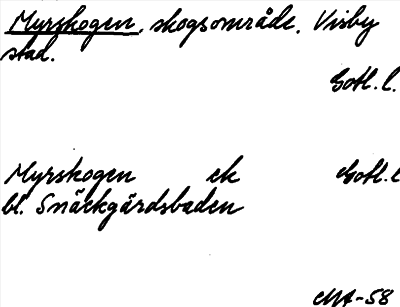 Myrskogen, skogsområde, Visby
stad.
Gotl. l.
Myrskogen ek Gotl. l
bl. Snäckgärdsbaden
MA-58